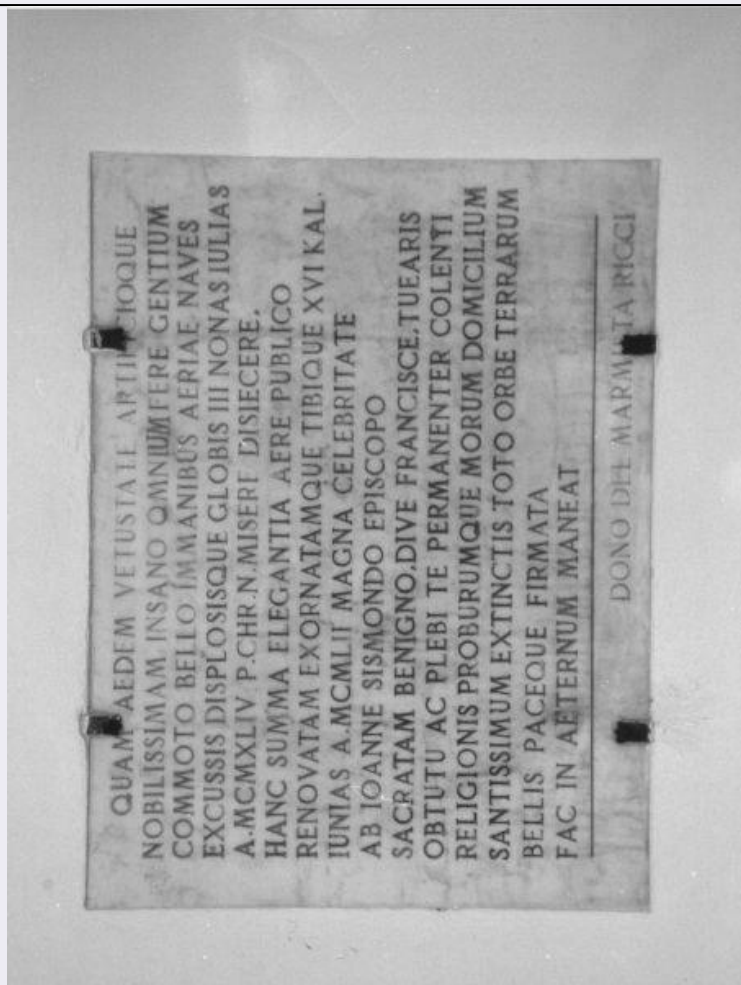 QUAM AEDEM VETUSTATE ARTIFICIOQUE
NOBILISSIMAM INSANO OMNIUM FERE GENTIUM
COMMOTO BELLO IMMANIBUS AERIAE NAVES
EXCUSSIS DISPLOSISQUE GLOBIS III NONAS IULIAS
A.MCMXLIV P.CHR.N.MISERE DISIECERE,
HANC SUMMA ELEGANTIA AERE PUBLICO
RENOVATAM EXORNATAMQUE TIBIQUE XVI KAL.
IUNIAS A.MCMLII MAGNA CELEBRITATE
AB IOANNE SISMONDO EPISCOPO
SACRATAM BENIGNO,DIVE FRANCISCE,TUEARIS
OBTUTU AC PLEBI TE PERMANENTER COLENTI
RELIGIONIS PROBURUMQUE MORUM DOMICILIUM
SANTISSIMUM EXTINCTIS TOTO ORBE TERRARUM
BELLIS PACEQUE FIRMATA
FAC IN AETERNUM MANEAT
DONO DEL MARMISTA RICCI